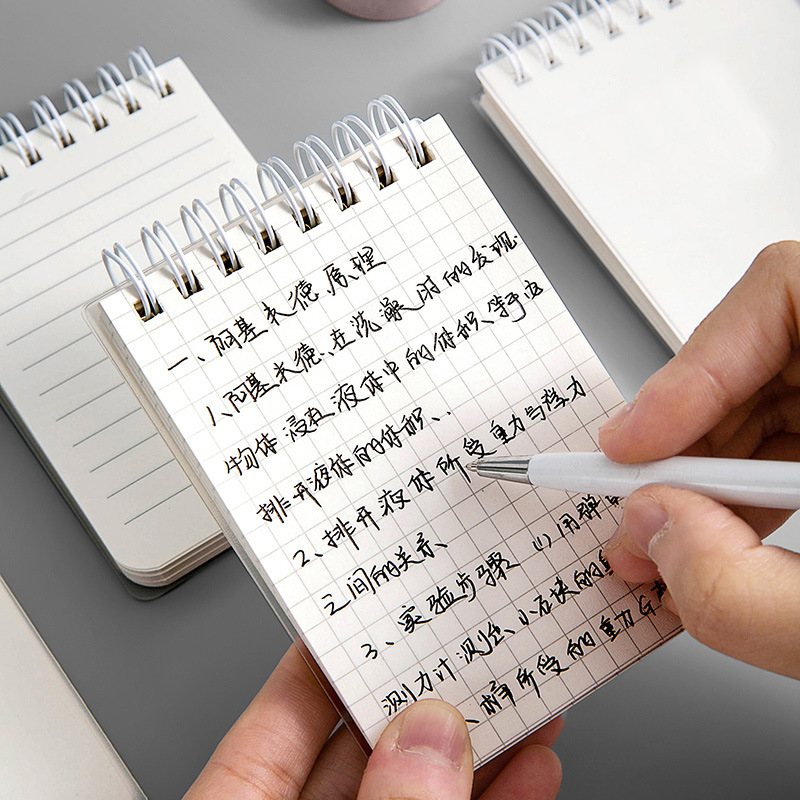 一、阿基米德原理
1、阿基米德、在洗澡时的发现
物体浸在液体中的体积、等于它
排开液体的体积、
2、排开液体所受重力与浮力
之间的关系、
3、实验步骤 (1)用弹
测力计测出、小石块的
、桶所受的重力G